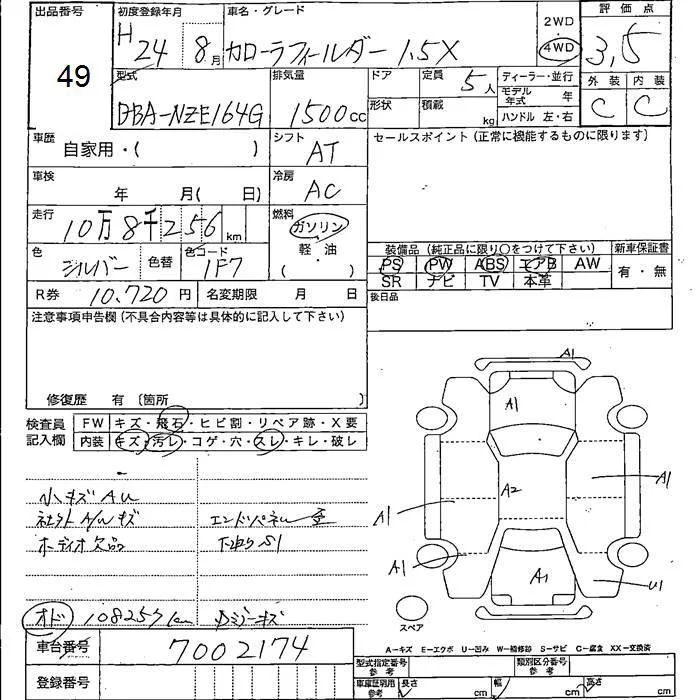 出品番号
49
初度登録年月
H 24 8月
車名・グレード
カローラフィールダー 1.5X
2WD
4WD
評価点
3.5
型式
DBA-NZE164G
排気量
1500cc
ドア
定員 5人
ディーラー・並行
モデル年式 年
ハンドル 左・右
形状
積載 kg
外装 内装
C C
車歴
自家用・( )
シフト
AT
セールスポイント(正常に機能するものに限ります)
車検
年 月( 日)
冷房
AC
走行
10万8千256km
燃料
ガソリン
軽・油
( )
色
シルバー
色替
色コード
1F7
装備品(純正品に限り○をつけて下さい)
新車保証書
PS PW ABS エアB AW
有・無
SR ナビ TV 本革
R券 10,720円
名変期限 月 日
後日品
注意事項申告欄(不具合内容等は具体的に記入して下さい)
修復歴 有〔箇所 〕
検査員記入欄
FW キズ・飛石・ヒビ割・リペア跡・X要
内装 キズ・汚レ・コゲ・穴・スレ・キレ・破レ
小キズAU
社外A/Wキズ
オーディオ欠品
エンドパネル
オド 108257km
車台番号 7002174
登録番号
A1
A1
A2
A1
A1
A1
A1
U1
スペア
A－キズ E－エクボ U－凹み W－補修跡 S－サビ C－腐食 XX－交換済
型式指定番号
参考
類別区分番号
参考
車庫証明用
参考
長さ cm
幅 cm
高さ cm